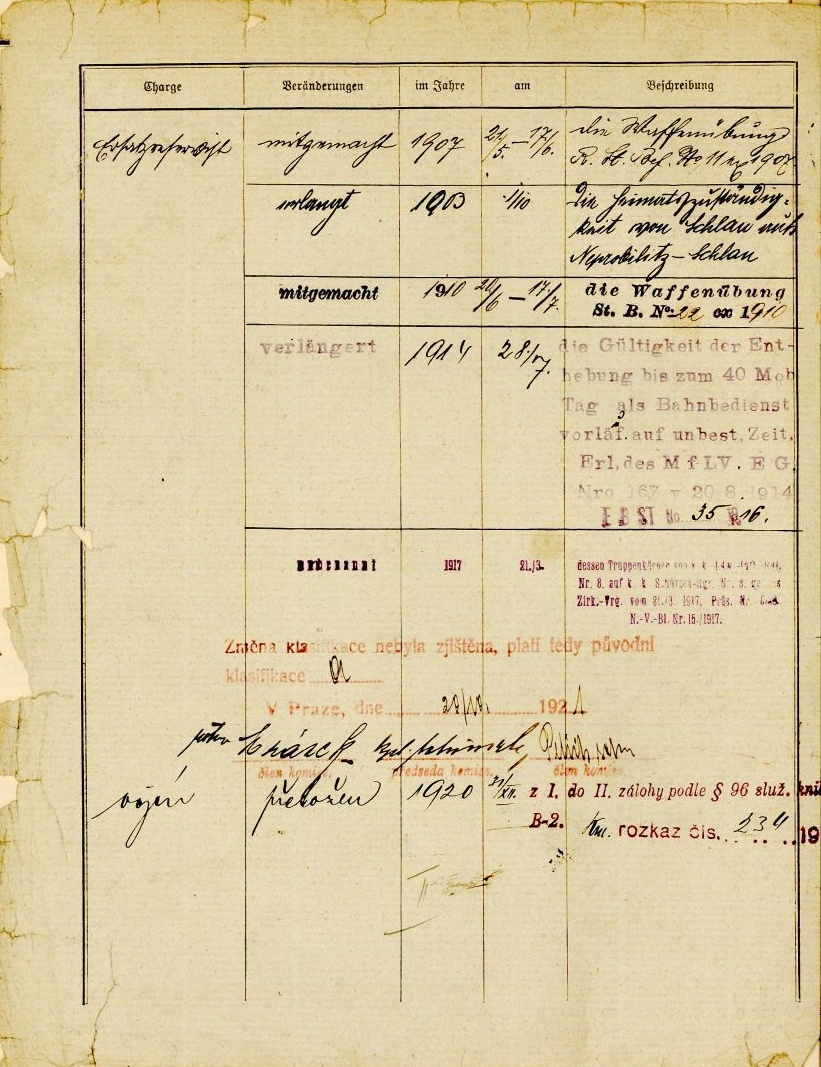 Charge Veränderungen im Jahre am Beschreibung
Ersatzreservist mitgemacht 1907 21/5. – 17/6. die Waffenübung
R. St. Bef. No 11 ex 1907
erlangt 1903 1/10 die Heimatszuständig-
keit von Schlan auf
Neprobilitz – Schlan
mitgemacht 1910 20/6 – 17/7. die Waffenübung
St. B. No 22 ex 1910
verlängert 1914 28./7. die Gültigkeit der Ent-
hebung bis zum 40 Mob
Tag als Bahnbedienst
vorläf. auf unbest. Zeit.
Erl. des M f LV. E G.
Nro 167 v 20 8. 1914
E B ST No. 35 16.
1917 21./3. dessen Truppenkörper
Nr. 8. auf k. k. Schützen-Rgt. Nr. 8.
Zirk.-Vrg. vom 21./3. 1917, Präs. Nr.
N.-V.-Bl. Nr. 15./1917.
Zračna klasifikace nebyla zjištěna, platí tedy původní
klasifikace A
V Praze, dne 1921
člen komise. předseda komise. člen komise.
vojín přeložen 1920 31/XII. z I. do II. zálohy podle § 96 služ. kni
B-2. Km. rozkaz čís. 234 19
II